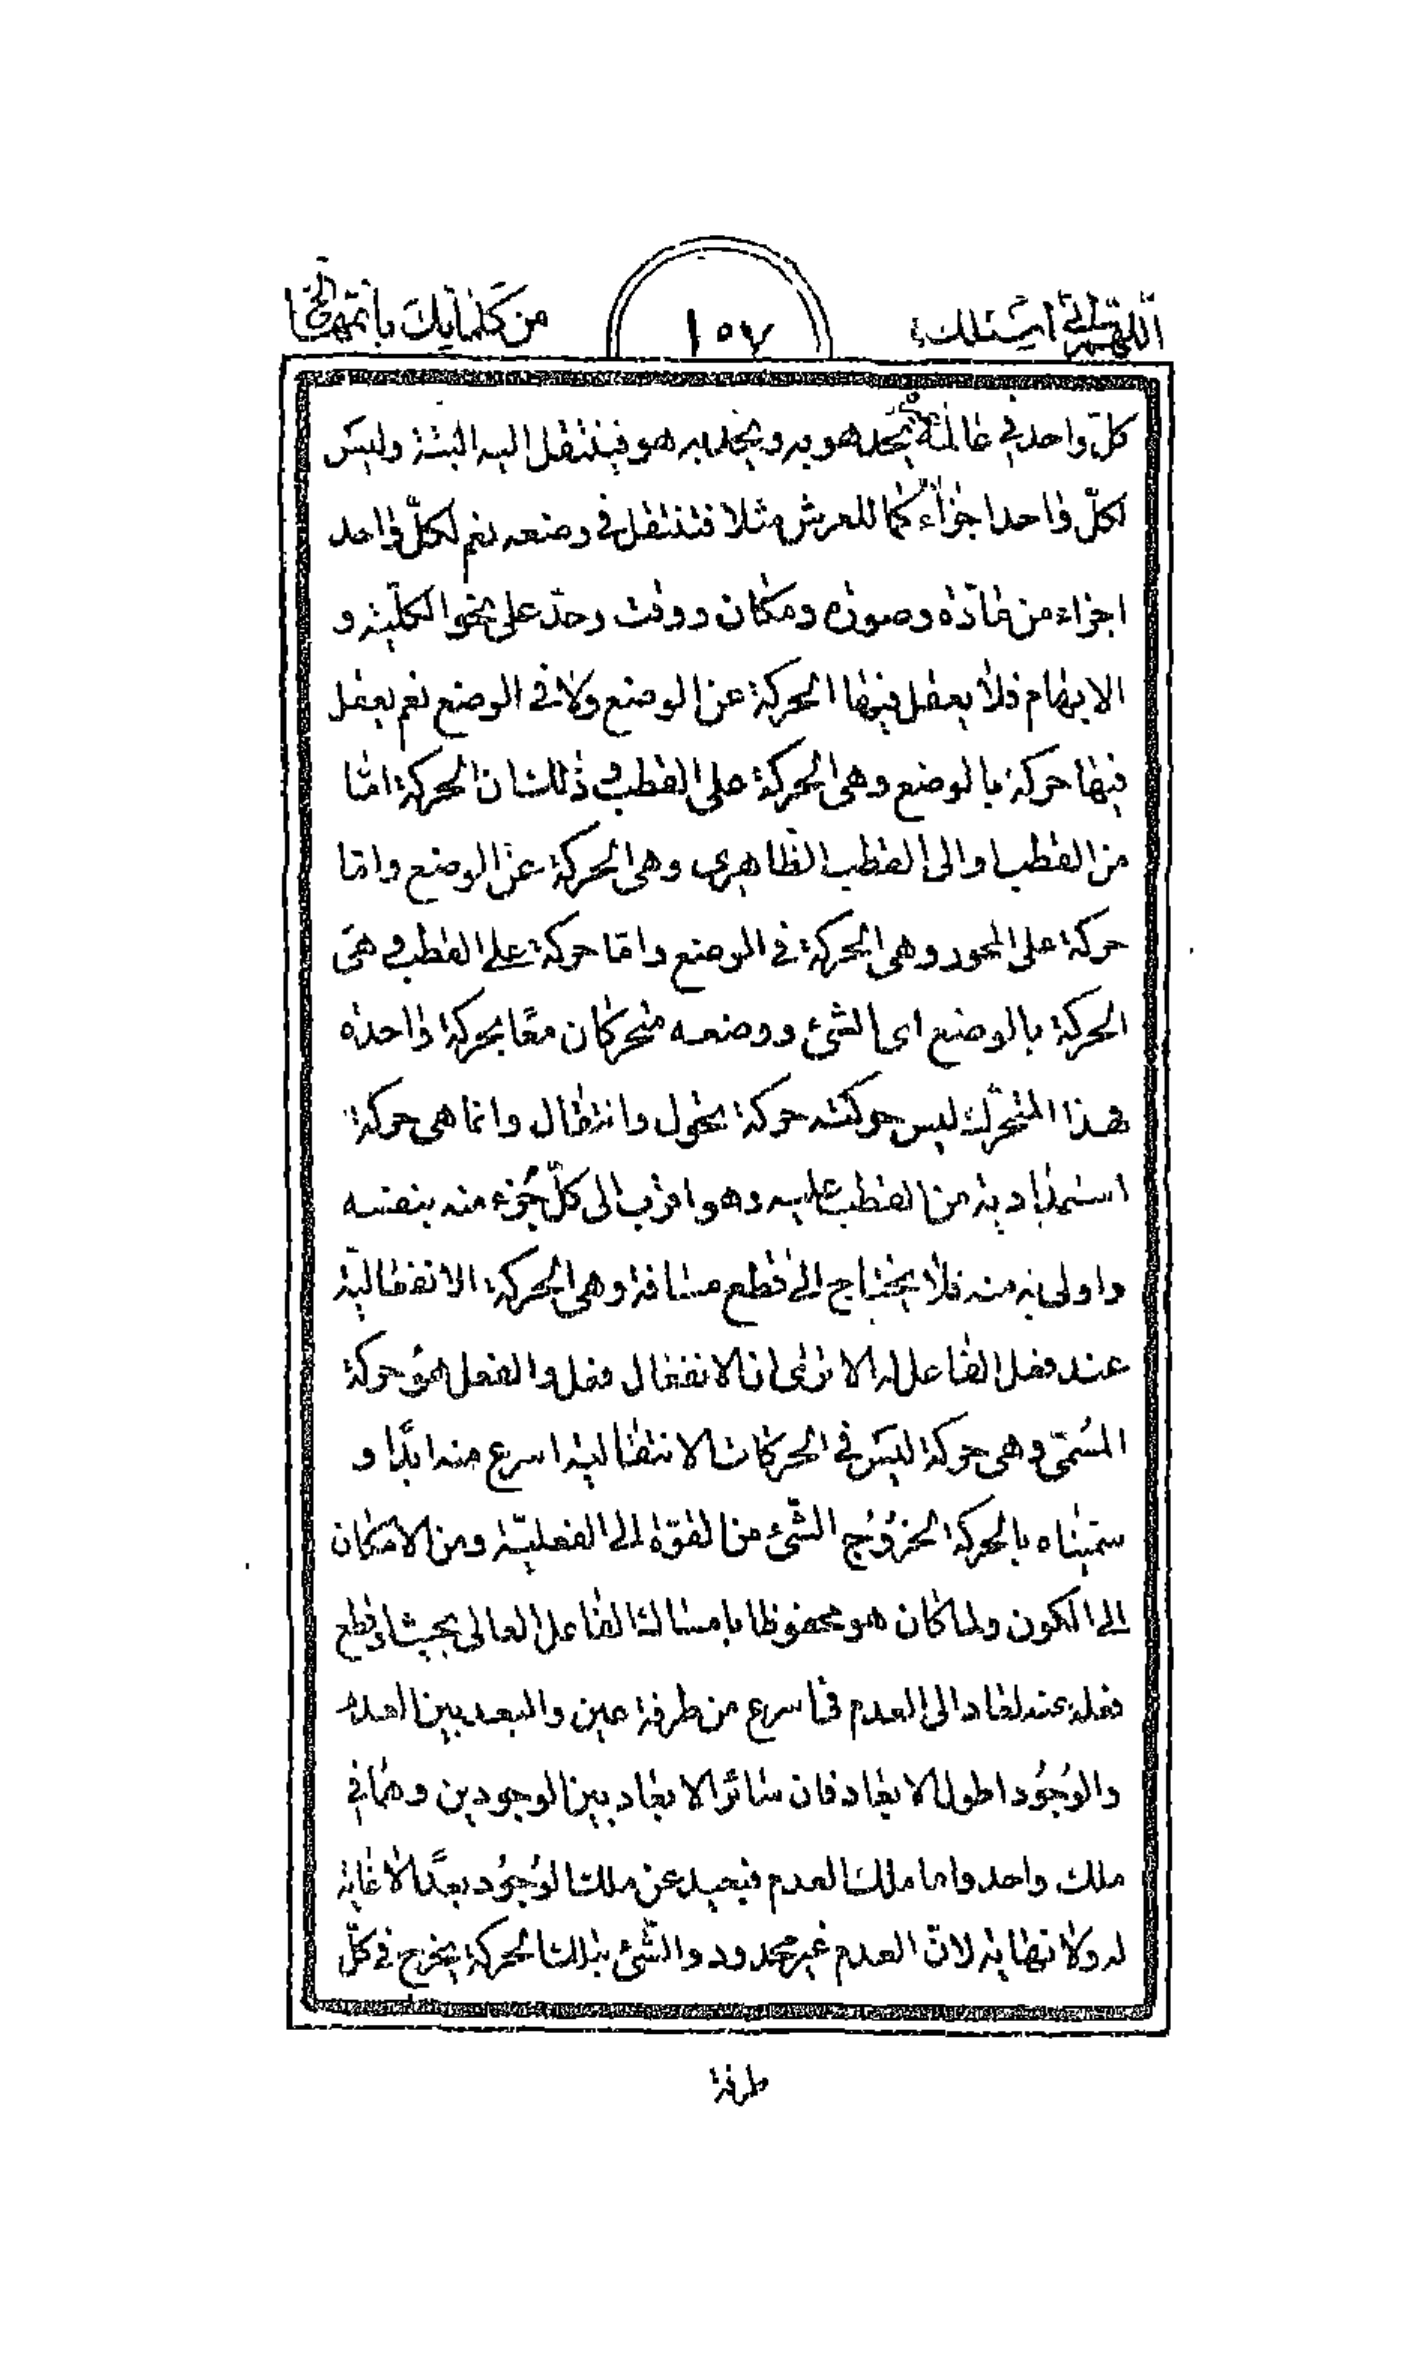 اللهم اني اسئلك
١٥٧
من كلماتك باتمها الخ
كلّ واحد في عالمه يحد هو به و يحد به هو فينتقل اليه البتة وليس
لكلّ واحد اجزاء كما للعرش مثلا فتنتقل في وضعه نعم لكلّ واحد
اجزاء من مادّة وصورة ومكان ووقت وحدّ على نحو الكلّية و
الابهام فلا يعقل فيها الحركة عن الوضع ولا في الوضع نعم يعقل
فيها حركة بالوضع وهى الحركة على القطب و ذلك ان الحركة امّا
من القطب او الى القطب الظاهرى وهى الحركة عن الوضع وامّا
حركة على المحور وهى الحركة في الوضع وامّا حركة على القطب و هى
الحركة بالوضع اى الشىء ووضعه متحركان معًا بحركة واحدة
فهذا المتحرّك ليس حركته حركة تحول وانتقال وانما هى حركة
استمدادية من القطب عليه وهو اقرب الى كلّ جزء منه بنفسه
واولى به منه فلا يحتاج الى قطع مسافة وهى الحركة الانفعالية
عند فعل الفاعل له الا ترى ان الانفعال فعل والفعل هو حركة
المسمّى وهى حركة ليس في الحركات الانتقالية اسرع منه ابدًا و
سمّيناه بالحركة لخروج الشّىء من القوّة الى الفعليّة ومن الامكان
الى الكون ولما كان هو محفوظا بامساك الفاعل العالى بحيث لو قطع
فعله عنه لعاد الى العدم فى اسرع من طرفة عين والبعد بين العدم
والوجود اطول الابعاد فان سائر الابعاد بين الوجودين وهما في
ملك واحد واما ملك العدم فبعيد عن ملك الوجود بعدًا لا غاية
له ولا نهاية لانّ العدم غير محدود والشّىء بتلك الحركة يخرج في كلّ
طرفة